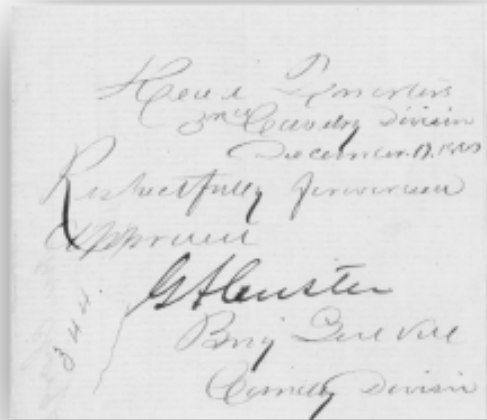 Head Quarters
3rd Cavalry Division
December 19, 
Respectfully forwarded
Approved
G A Custer
Brig Genl Vol
Comdg Division
344